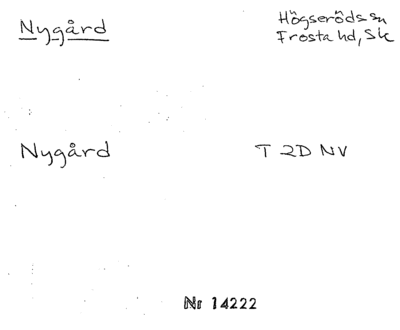 Nygård
Högseröds sn
Frosta hd, Sk
Nygård
T 2D NV
Nr 14222